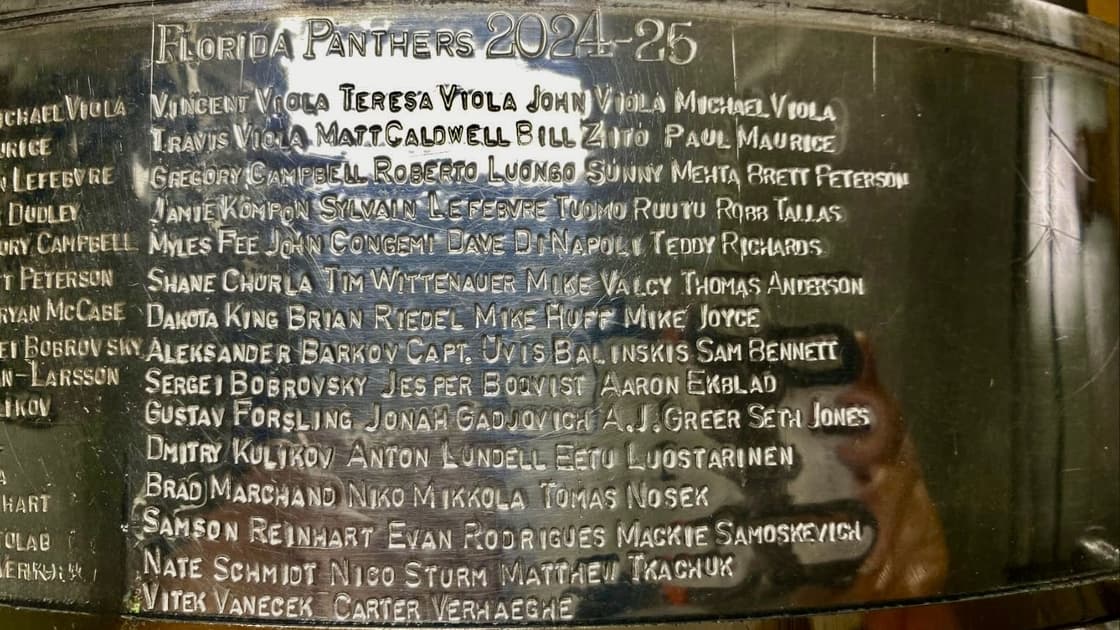 FLORIDA PANTHERS 2024-25
VINCENT VIOLA TERESA VIOLA JOHN VIOLA MICHAEL VIOLA
TRAVIS VIOLA MATT CALDWELL BILL ZITO PAUL MAURICE
GREGORY CAMPBELL ROBERTO LUONGO SUNNY MEHTA BRETT PETERSON
JAMIE KOMPON SYLVAIN LEFEBVRE TUOMO RUUTU ROBB TALLAS
MYLES FEE JOHN CONGEMI DAVE DINAPOLI TEDDY RICHARDS
SHANE CHURLA TIM WITTENAUER MIKE VALCY THOMAS ANDERSON
DAKOTA KING BRIAN RIEDEL MIKE HUFF MIKE JOYCE
ALEKSANDER BARKOV CAPT. UVIS BALINSKIS SAM BENNETT
SERGEI BOBROVSKY JESPER BOQVIST AARON EKBLAD
GUSTAV FORSLING JONAH GADJOVICH A.J.GREER SETH JONES
DMITRY KULIKOV ANTON LUNDELL EETU LUOSTARINEN
BRAD MARCHAND NIKO MIKKOLA TOMAS NOSEK
SAMSON REINHART EVAN RODRIGUES MACKIE SAMOSKEVICH
NATE SCHMIDT NICO STURM MATTHEW TKACHUK
VITEK VANECEK CARTER VERHAEGHE
ICHAEL VIOLA
URICE
LEFEBVRE
DUDLEY
ORY CAMPBELL
T PETERSON
RYAN MCCABE
EI BOBROVSKY
N-LARSSON
LIKOV
HART